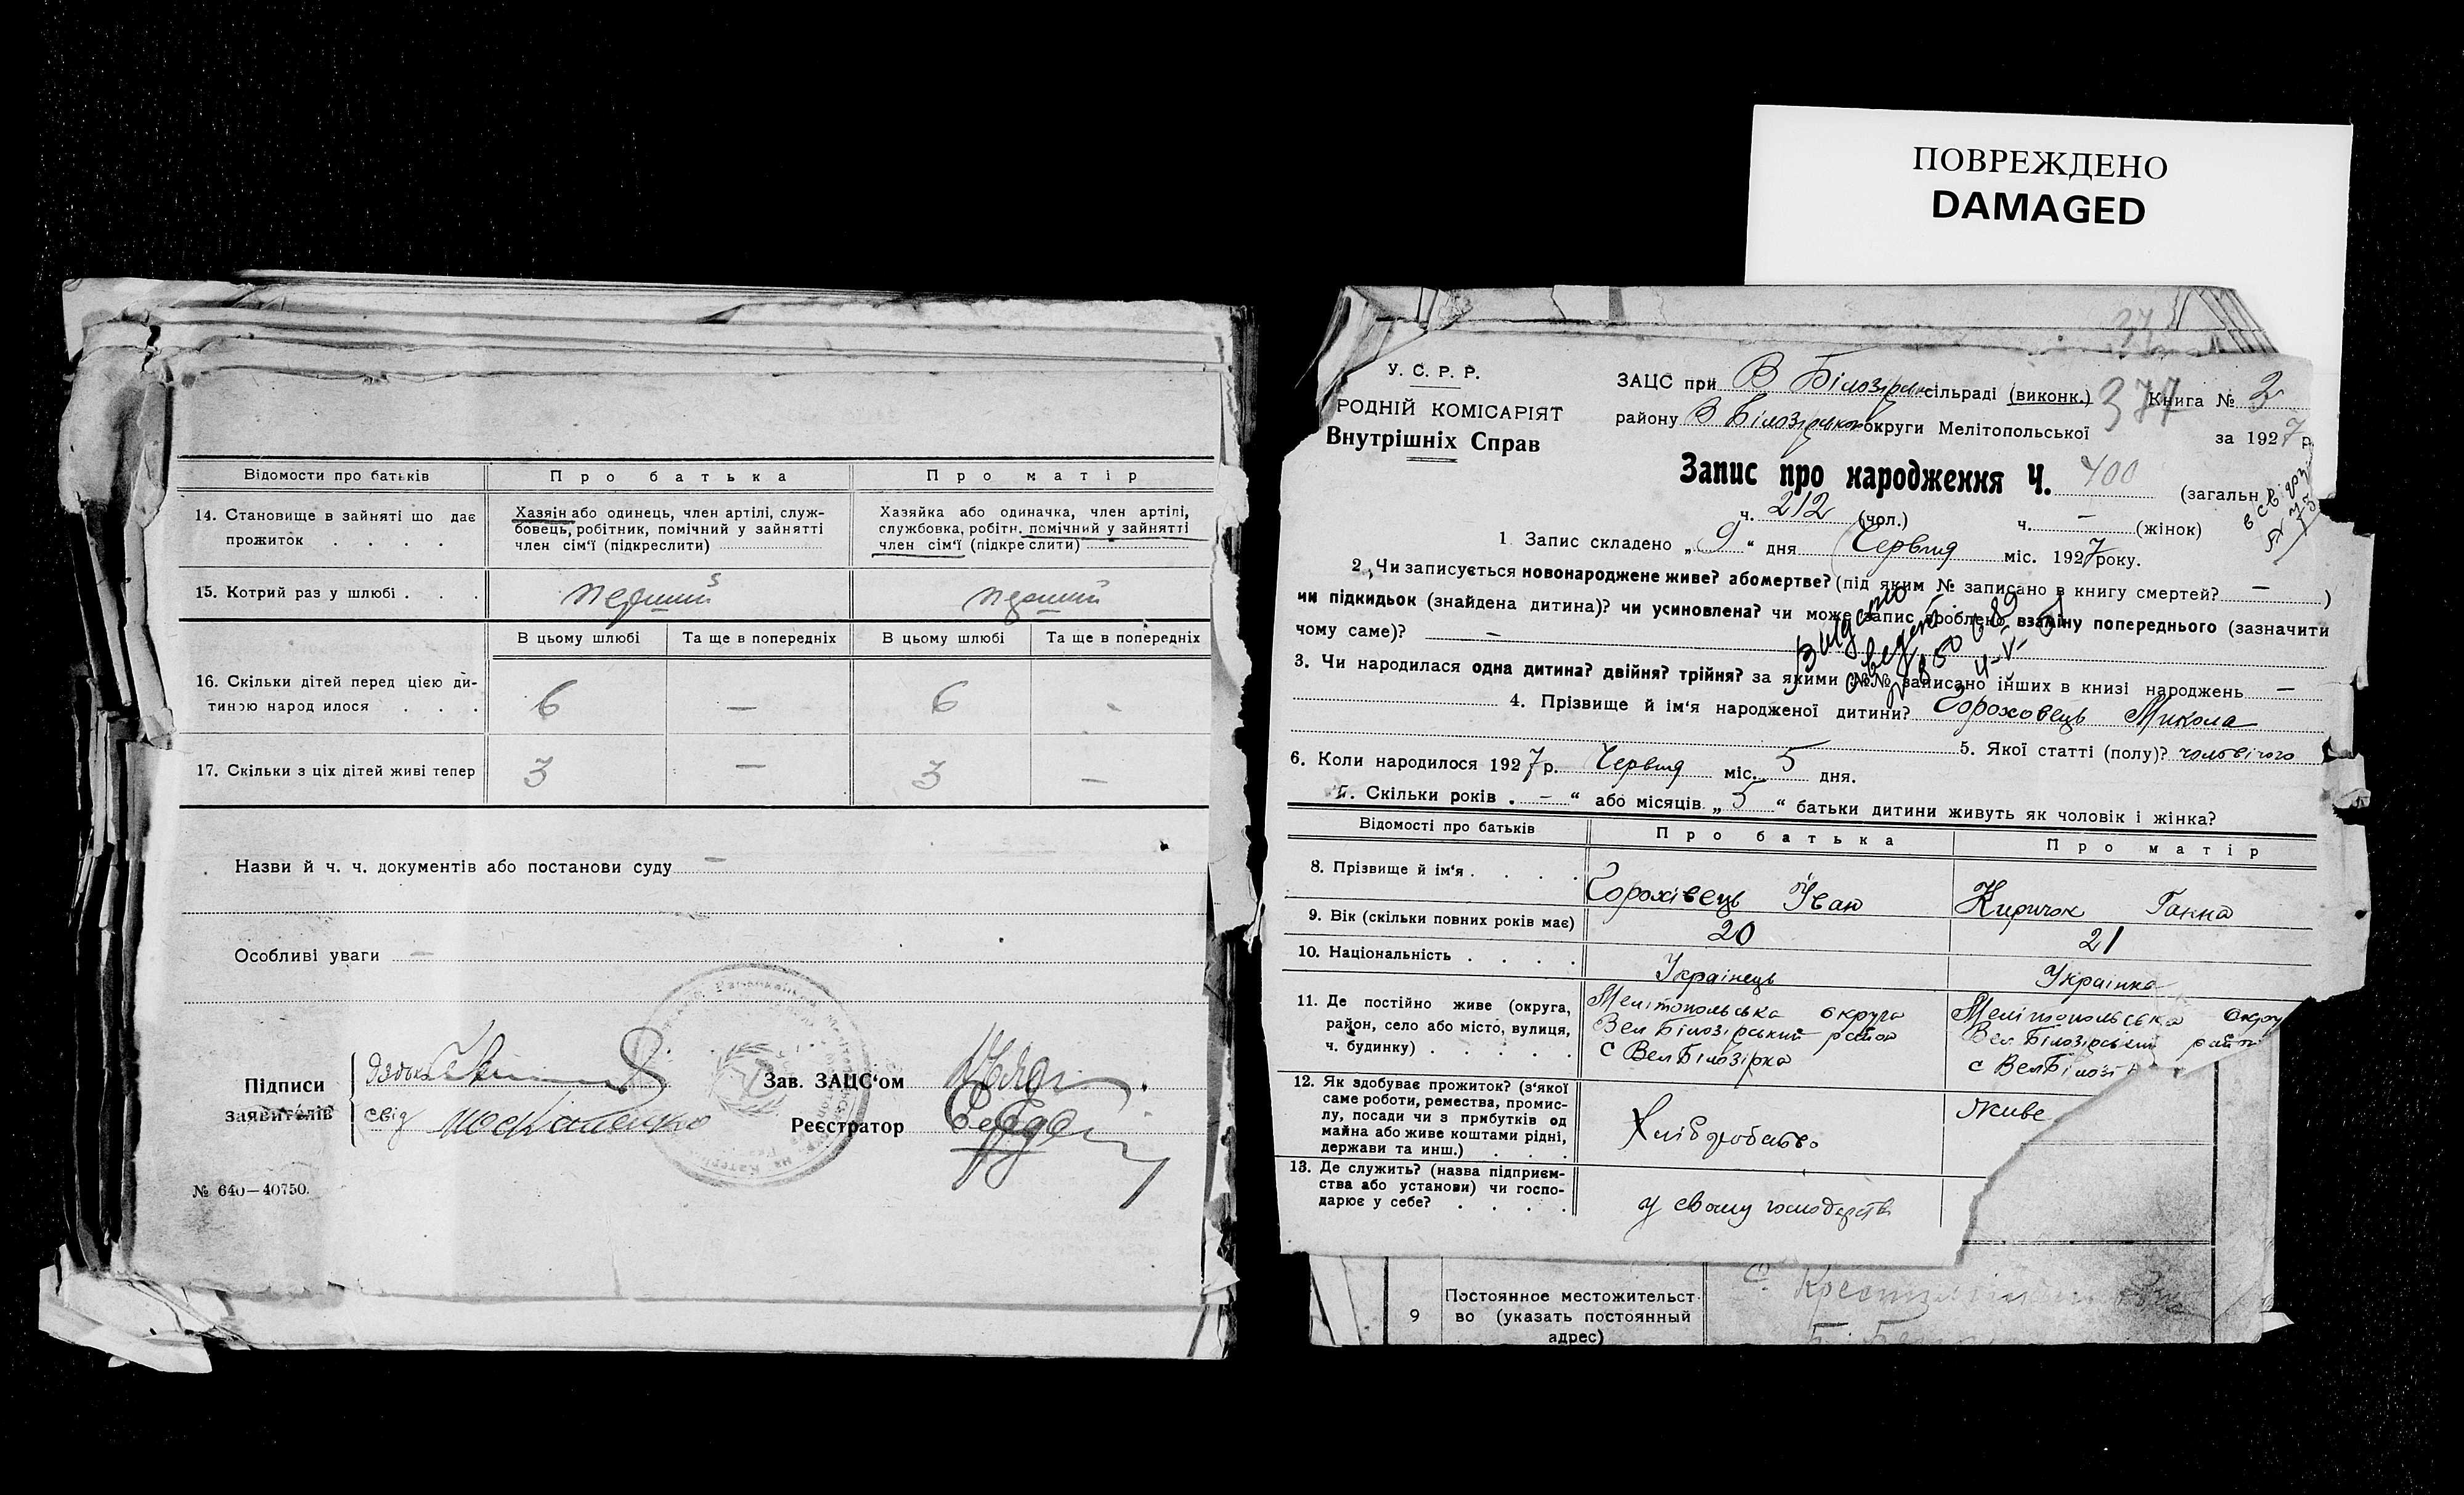 ПОВРЕЖДЕНО
DAMAGED
Відомости про батьків
Про батька
Про матір
14. Становище в зайняті що дає
прожиток . . . .
Хазяін або одинець, член артілі, служ-
бовець, робітник, помічний у зайнятті
член сім'ї (підкреслити)
Хазяйка або одиначка, член артілі,
службовка, робітн. помічний у зайнятті
член сім'ї (підкре слити)
15. Котрий раз у шлюбі . . .
перший
перший
В цьому шлюбі
Та ще в попередніх
В цьому шлюбі
Та ще в попередніх
16. Скільки дітей перед цією ди-
тиною народ илося . . .
6 — 6 -
17. Скільки з ціх дітей живі тепер
3 — 3 —
Назви й ч. ч. документів або постанови суду —
Особливі уваги —
Підписи
заявителів
свід
Зав. ЗАЦС'ом
Реєстратор
№ 640—40750.
У. С. Р. Р.
РОДНІЙ КОМІСАРІЯТ
Внутрішніх Справ
ЗАЦС при В Білозірск сільраді (виконк.) 377 Книга № 2
району В Білозірськой округи Мелітопольської
за 1927 р.
Запис про народження Ч. 400 (загальн
ч. 212 (чол.) ч. — (жінок)
1. Запис складено „ 9 " дня Червня міс. 1927 року.
2. Чи записується новонароджене живе? або мертве? (під яким № записано в книгу смертей? — )
чи підкидьок (знайдена дитина)? чи усиновлена? чи може запис зроблено взаміну попереднього (зазначити
чому саме)? —
Видано
3. Чи народилася одна дитина? двійня? трійня? за якими №№ записано інших в книзі народжень —
4. Прізвище й ім'я народженої дитини? Гороховець Микола
5. Якої статті (полу)? чоловічого
6. Коли народилося 1927 р. Червня міс. 5 дня.
7. Скільки років . — " або місяців „ 5 " батьки дитини живуть як чоловік і жінка?
Відомості про батьків
Про батька
Про матір
8. Прізвище й ім'я . . . .
Горохівець Іван
Киричок Ганна
9. Вік (скільки повних років має)
20
21
10. Національність . . . .
Українець
Українка
11. Де постійно живе (округа,
район, село або місто, вулиця,
ч. будинку) . . . . .
Мелітопольська округа
Вел Білозірський район
с Вел Білозірка
Мелітопольська
Вел Білозірський район
с Вел Білозі
12. Як здобуває прожиток? (з'якої
саме роботи, ремества, промис-
лу, посади чи з прибутків од
майна або живе коштами рідні,
держави та инш.) . . .
Хліборобство
Живе
13. Де служить? (назва підприєм-
ства або установи) чи госпо-
дарює у себе? . . . .
у своему господарстві
9
Постоянное местожительст
во (указать постоянный
адрес)